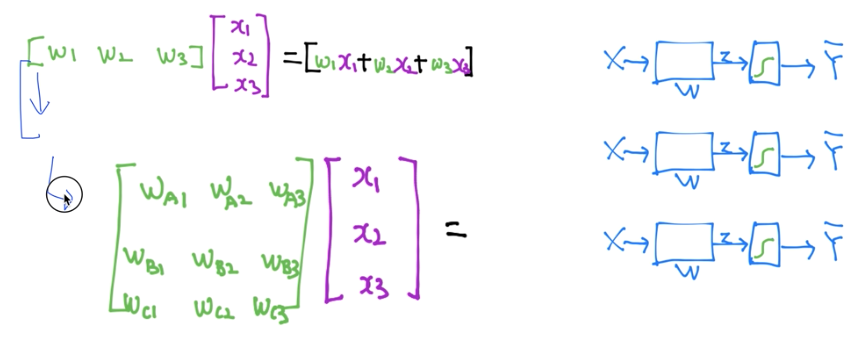 [w1 w2 w3] [x1 x2 x3] = [w1x1+w2x2+w3x3]
[wA1 wA2 wA3
wB1 wB2 wB3
wC1 wC2 wC3] [x1 x2 x3] =
X → z → ∫ → Ȳ
W
X → z → ∫ → Ȳ
W
X → z → ∫ → Ȳ
W